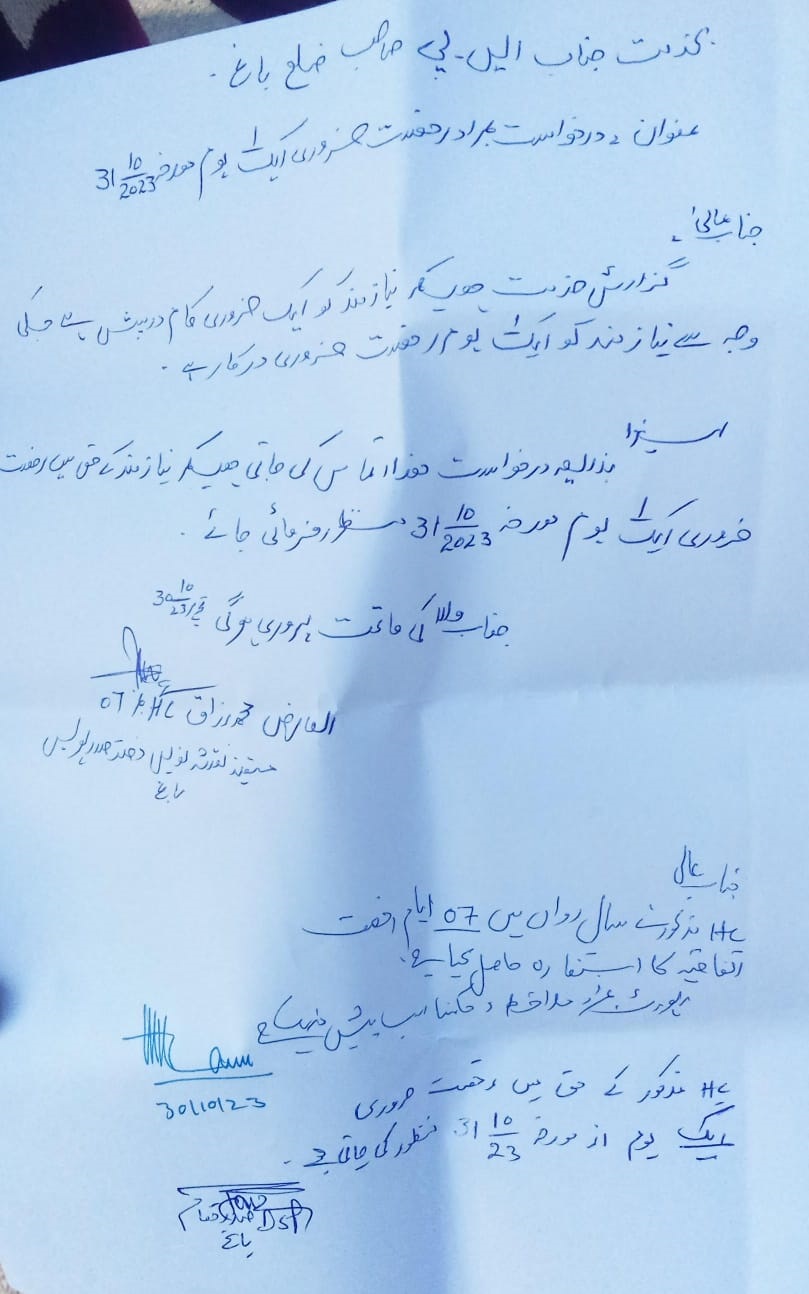 بخدمت جناب ایس۔پی صاحب ضلع باغ۔
عنوان :۔ درخواست بمراد رخصت ضروری ایک 1 یوم مورخہ 31 10/2023
جناب عالی!
گزارش خدمت ہیکہ نیازمند کو ایک ضروری کام درپیش ہے جسکی
وجہ سے نیازمند کو ایک 1 یوم رخصت ضروری درکار ہے۔
لہذا
بذریعہ درخواست ھذا التماس کی جاتی ہیکہ نیازمند کے حق میں رخصت
ضروری ایک 1 یوم مورخہ 31 10/2023 منظور فرمائی جائے۔
جناب والا کی ماتحت پروری ہوگی 30 10/23
العارض محمد رزاق HC نمبر 07
متعینہ نقشہ نویس دفتر صدر پولیس
باغ
جناب عالی
HC مذکور نے سال رواں میں 07 ایام رخصت
اتفاقیہ کا استفادہ حاصل کیا ہے۔
رپورٹ بمراد ملاحظہ و حکم مناسب پیش خدمت ہے
30/10/23
HC مذکور کے حق میں رخصت ضروری
ایک یوم از مورخہ 31 10/23 منظور کی جاتی ہے۔
DSP
باغ